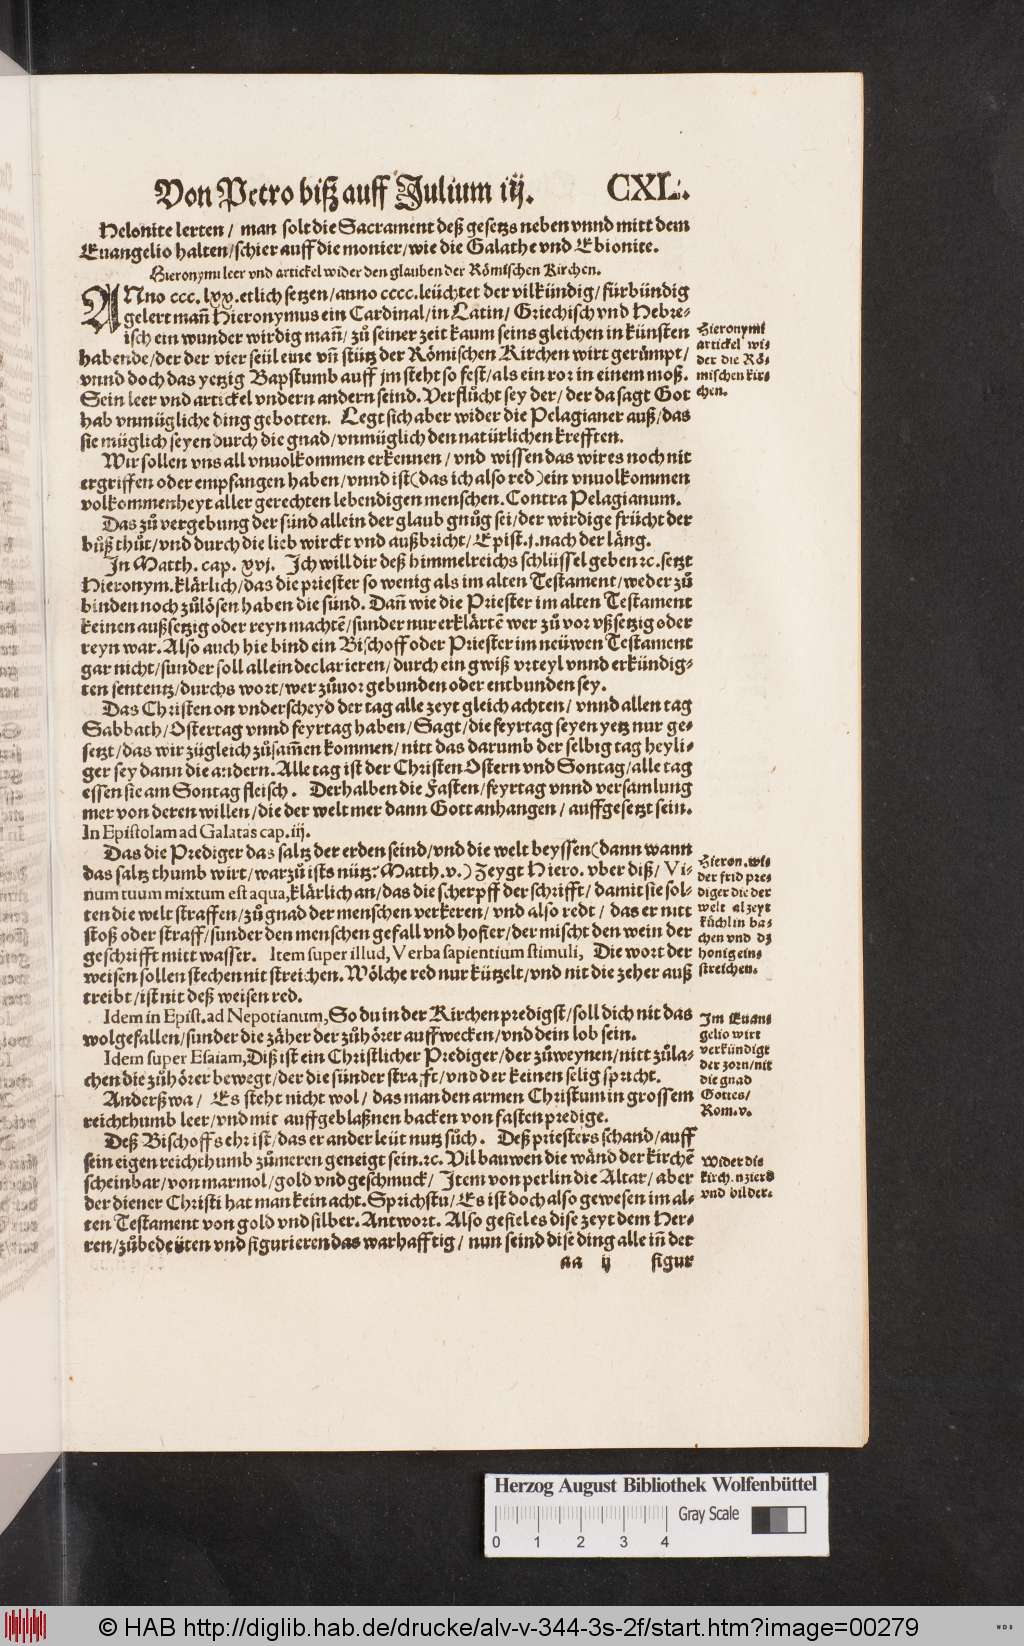 Von Petro biß auff Julium iij. CXL.
Helonite lerten / man solt die Sacrament deß gesetzs neben vnnd mitt dem
Euangelio halten / schier auff die monier / wie die Galathe vnd Ebionite.
Hieronymi leer vnd artickel wider den glauben der Römischen Kirchen.
ANno ccc. lxx. etlich setzen / anno cccc. leüchtet der vilkündig / fürbündig
gelert mañ Hieronymus ein Cardinal / in Latin / Griechisch vnd Hebre-
isch ein wunder wirdig mañ / zů seiner zeit kaum seins gleichen in künsten
habende / der der vier seül eine vñ stütz der Römischen Kirchen wirt gerümpt /
vnnd doch das yetzig Bapstumb auff jm steht so fest / als ein ror in einem moß.
Sein leer vnd artickel vndern andern seind. Verflůcht sey der / der da sagt Got
hab vnmügliche ding gebotten. Legt sich aber wider die Pelagianer auß / das
sie müglich seyen durch die gnad / vnmüglich den natürlichen krefften.
Wir sollen vns all vnuolkommen erkennen / vnd wissen das wir es noch nit
ergriffen oder empfangen haben / vnnd ist (das ich also red) ein vnuolkommen
volkommenheyt aller gerechten lebendigen menschen. Contra Pelagianum.
Das zů vergebung der sünd allein der glaub gnůg sei / der wirdige frücht der
bůß thůt / vnd durch die lieb wirckt vnd außbricht / Epist. j. nach der läng.
In Matth. cap. xvj. Ich will dir deß himmelreichs schlüssel geben ꝛc. setzt
Hieronym. klärlich / das die priester so wenig als im alten Testament / weder zů
binden noch zůlösen haben die sünd. Dañ wie die Priester im alten Testament
keinen außsetzig oder reyn machtẽ / sunder nur erklärtẽ wer zů vor vßsetzig oder
reyn war. Also auch hie bind ein Bischoff oder Priester im neüwen Testament
gar nicht / sunder soll allein declarieren / durch ein gwiß vrteyl vnnd erkündig-
ten sententz / durchs wort / wer zůuor gebunden oder entbunden sey.
Das Christen on vnderscheyd der tag alle zeyt gleich achten / vnnd allen tag
Sabbath / Ostertag vnnd feyrtag haben / Sagt / die feyrtag seyen yetz nur ge-
setzt / das wir zůgleich zůsam̃en kommen / nitt das darumb der selbig tag heyli-
ger sey dann die andern. Alle tag ist der Christen Ostern vnd Sontag / alle tag
essen sie am Sontag fleisch. Derhalben die Fasten / feyrtag vnnd versamlung
mer von deren willen / die der welt mer dann Gott anhangen / auffgesetzt sein.
In Epistolam ad Galatas cap. iij.
Das die Prediger das saltz der erden seind / vnd die welt beyssen (dann wann
das saltz thumb wirt / warzů ists nütz? Matth. v.) Zeygt Hiero. vber diß / Vi-
num tuum mixtum est aqua, klärlich an / das die scherpff der schrifft / damit sie sol-
ten die welt straffen / zů gnad der menschen verkeren / vnd also redt / das er nitt
stoß oder straff / sunder den menschen gefall vnd hofier / der mischt den wein der
geschrifft mitt wasser. Item super illud, Verba sapientium stimuli, Die wort der
weisen sollen stechen nit streichen. Wölche red nur kützelt / vnd nit die zeher auß
treibt / ist nit deß weisen red.
Idem in Epist. ad Nepotianum, So du in der Kirchen predigst / soll dich nit das
wolgefallen / sunder die zäher der zůhörer auffwecken / vnd dein lob sein.
Idem super Esaiam, Diß ist ein Christlicher Prediger / der zůweynen / nitt zůla-
chen die zůhörer bewegt / der die sünder strafft / vnd der keinen selig spricht.
Anderßwa / Es steht nicht wol / das man den armen Christum in grossem
reichthumb leer / vnd mit auffgeblaßnen backen von fasten predige.
Deß Bischoffs ehr ist / das er ander leüt nutz sůch. Deß priesters schand / auff
sein eigen reichthumb zůmeren geneigt sein. ꝛc. Vil bauwen die wänd der kirchẽ
scheinbar / von marmol / gold vnd geschmuck / Item von perlin die Altar / aber
der diener Christi hat man kein acht. Sprichstu / Es ist doch also gewesen im al-
ten Testament von gold vnd silber. Antwort. Also gefiel es dise zeyt dem Her-
ren / zůbedeüten vnd figurieren das warhafftig / nun seind dise ding alle iñ der
aa ij figur
Hieronymi
artickel wi-
der die Rö-
mischen kir-
chen.
Hieron. wi-
der frid pre-
diger die der
welt alzeyt
küchlin ba-
chen vnd dz
honig ein-
streichen.
Im Euan-
gelio wirt
verkündigt
der zorn / nit
die gnad
Gottes /
Rom. v.
Wider die
kirchen zierd
vnd bilder.
Herzog August Bibliothek Wolfenbüttel
Gray Scale
0 1 2 3 4
© HAB http://diglib.hab.de/drucke/alv-v-344-3s-2f/start.htm?image=00279